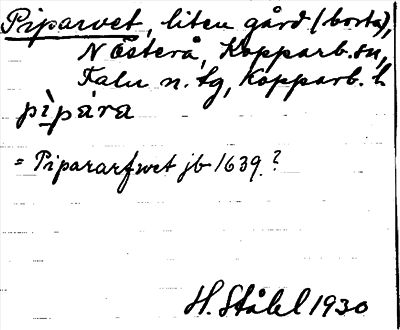 Piparvet, liten gård (borta),
N Österå, Kopparb. sn,
Falu n. tg, Kopparb. l.
pìpàra
= Pipararfwet jb 1639.?
H. Ståhl 1930